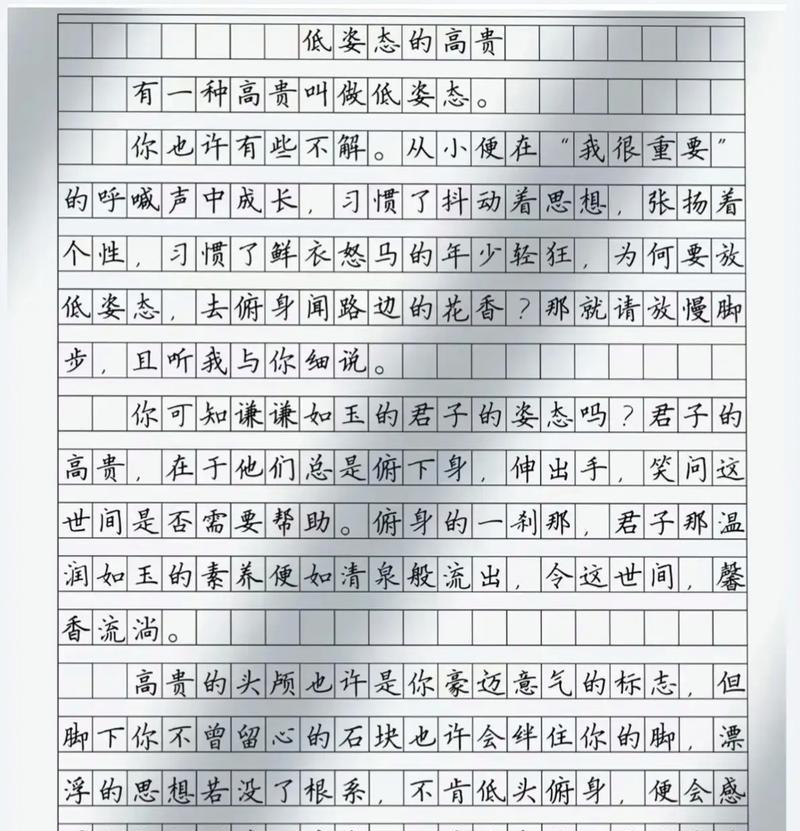 低姿态的高贵
有一种高贵叫做低姿态。
你也许有些不解。从小便在“我很重要”
的呼喊声中成长，习惯了抖动着思想，张扬着
个性，习惯了鲜衣怒马的年少轻狂，为何要放
低姿态，去俯身闻路边的花香？那就请放慢脚
步，且听我与你细说。
你可知谦谦如玉的君子的姿态吗？君子的
高贵，在于他们总是俯下身，伸出手，笑问这
世间是否需要帮助。俯身的一刹那，君子那温
润如玉的素养便如清泉般流出，令这世间，馨
香流淌。
高贵的头颅也许是你豪迈意气的标志，但
脚下你不曾留心的石块也许会绊住你的脚，漂
浮的思想若没了根系，不肯低头俯身，便会感